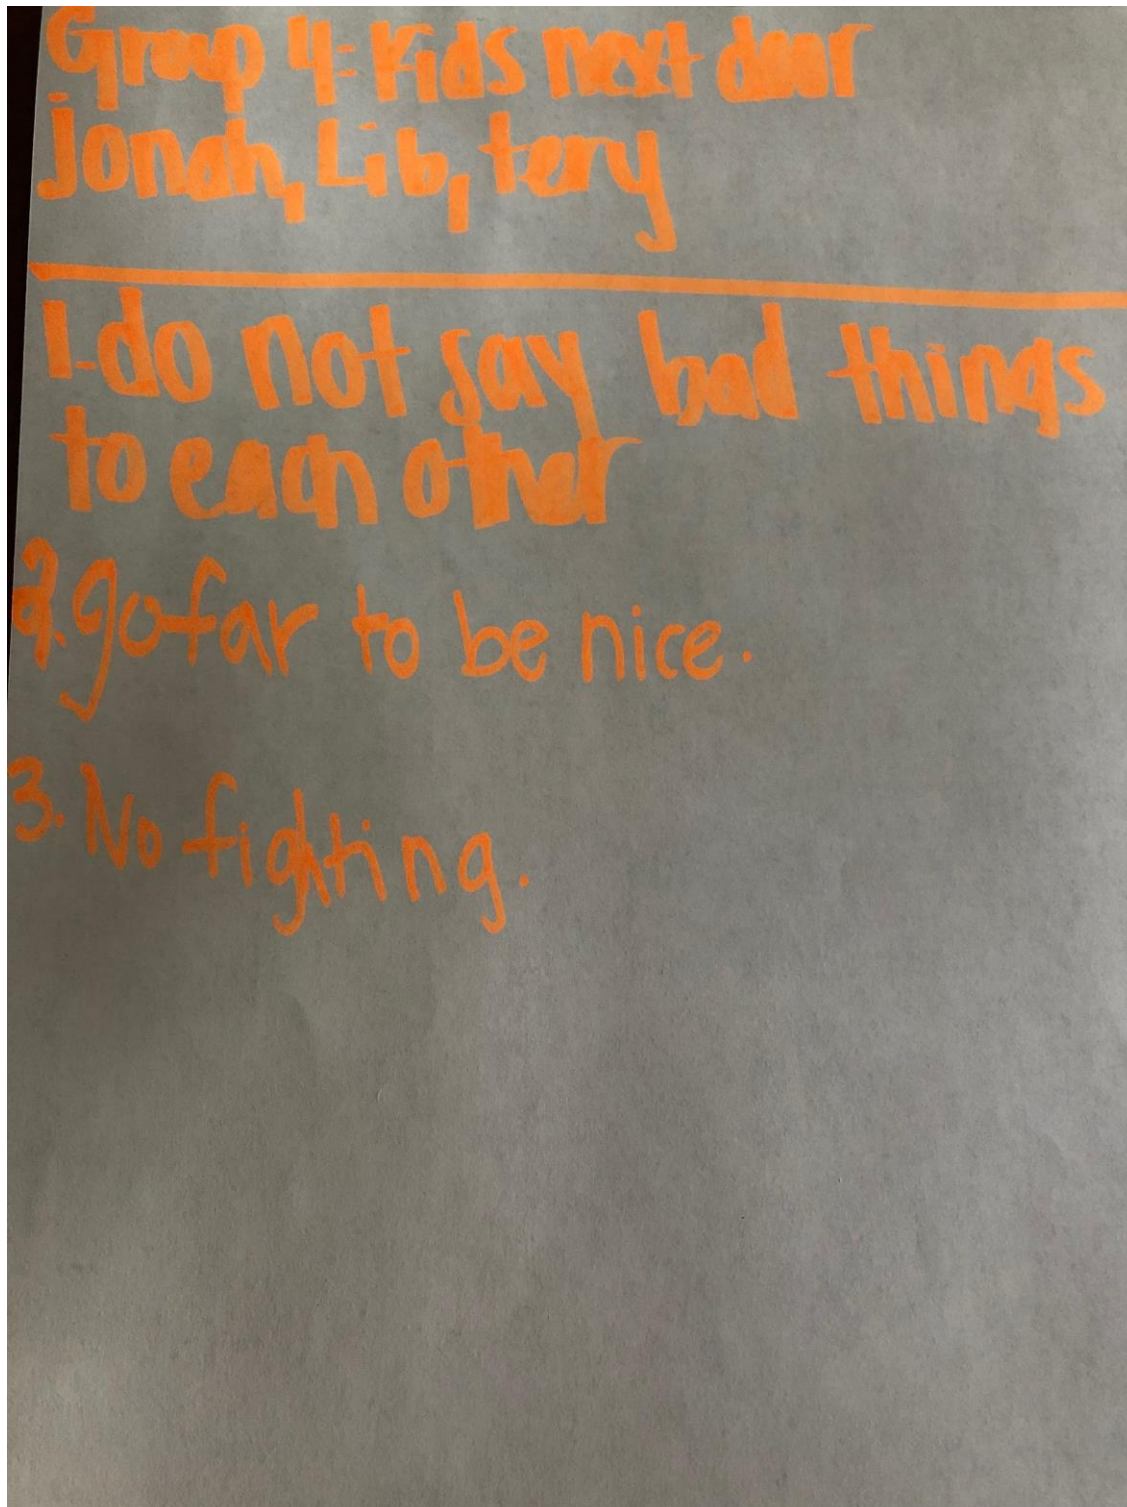 Group 4: Kids next door
jonah, Lib, tery
1.do not say bad things
to each other
2.go far to be nice.
3. No fighting.